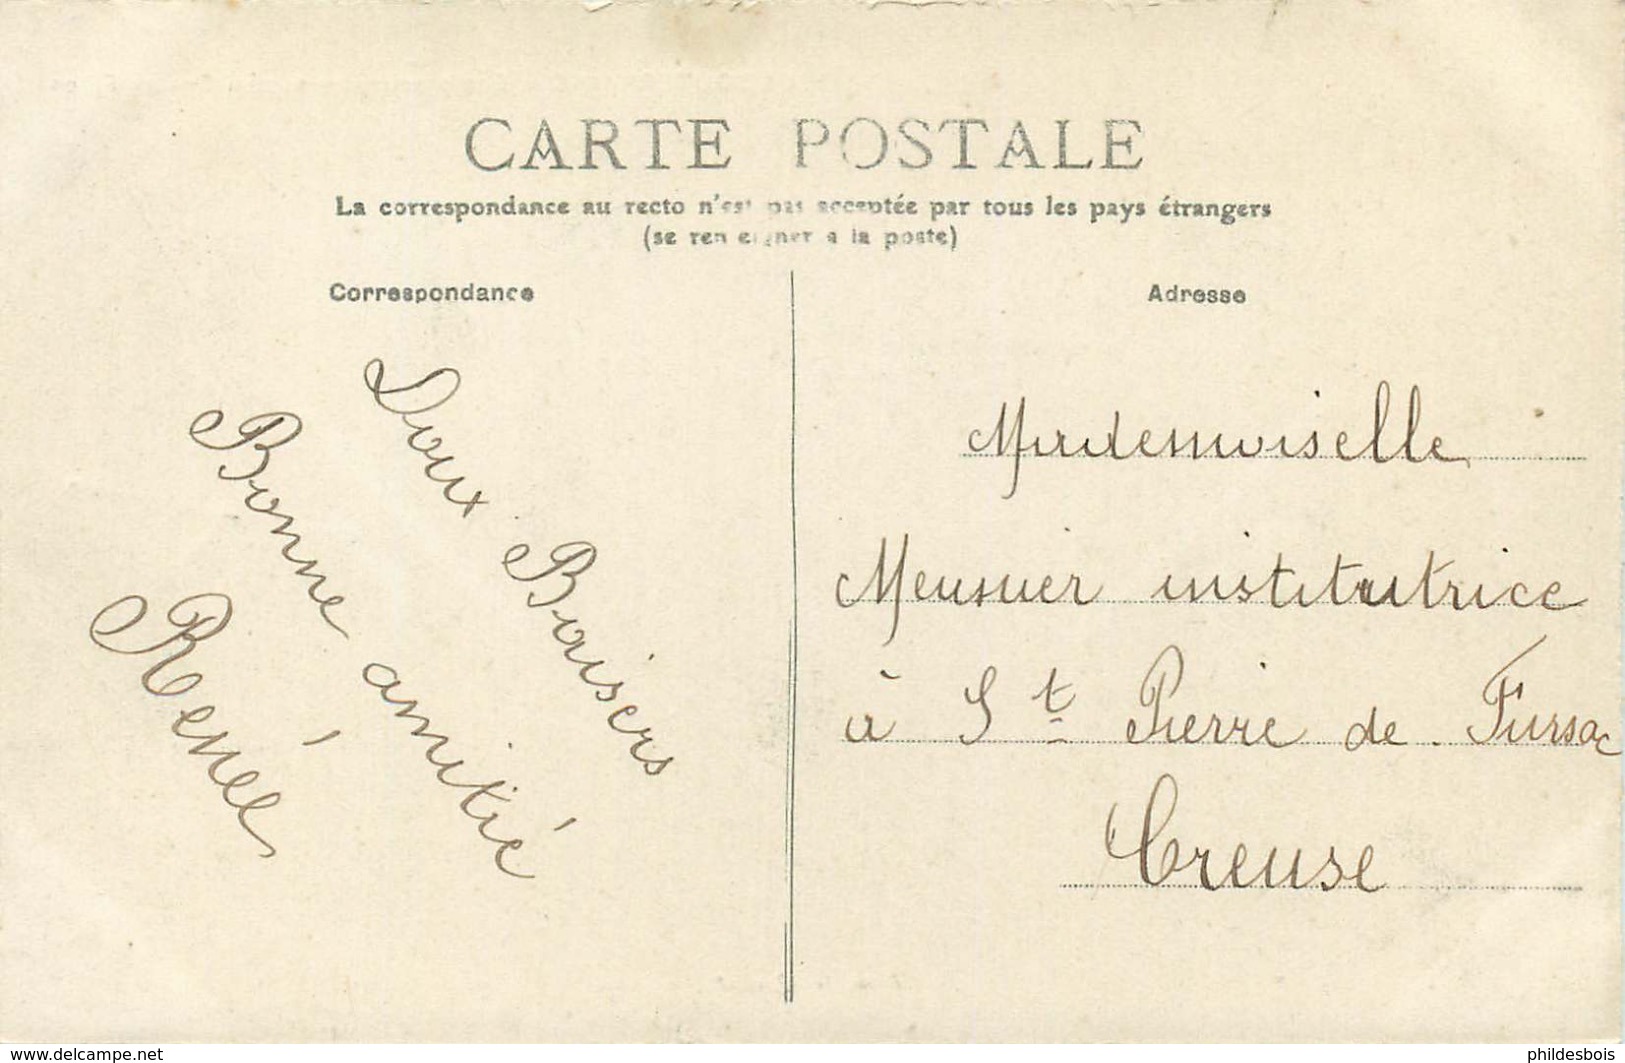 CARTE POSTALE
La correspondance au recto n'est pas acceptée par tous les pays étrangers
(se renseigner à la poste)
Correspondance
Adresse
Doux Baisers
Bonne amitié
Renée
Mademoiselle
Meusnier institutrice
à St Pierre de Fursac
Creuse
www.delcampe.net
phildesbois